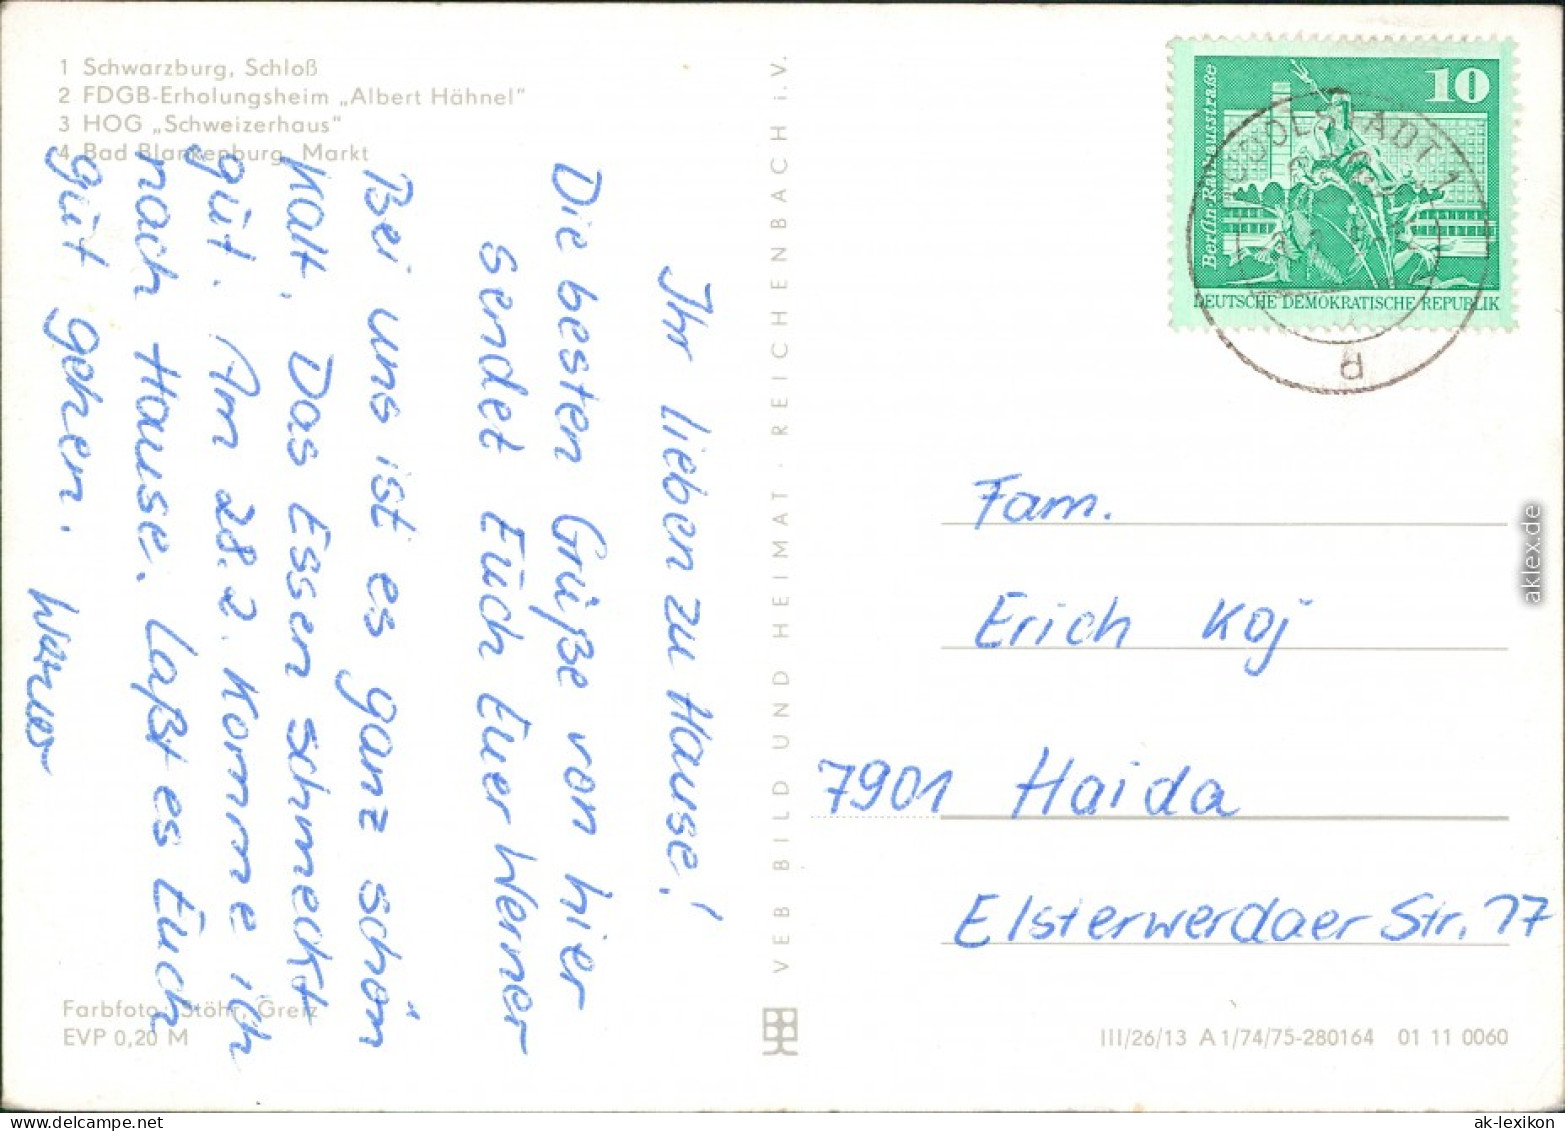 1 Schwarzburg, Schloß
2 FDGB-Erholungsheim „Albert Hähnel"
3 HOG „Schweizerhaus"
4 Bad Blankenburg, Markt
Ihr lieben zu Hause!
Die besten Grüße von hier
sendet Euch Euer Werner
Bei uns ist es ganz schön
kalt. Das Essen schmeckt
gut. Am 28.2. Komme ich
nach Hause. Laßt es Euch
gut gehen.
Werner
Farbfoto: Stöhr, Greiz
EVP 0,20 M
VEB BILD UND HEIMAT · REICHENBACH i. V.
10
Berlin Rathausstraße
DEUTSCHE DEMOKRATISCHE REPUBLIK
RUDOLSTADT 1
Fam.
Erich Koj
7901 Haida
Elsterwerdaer Str. 17
III/26/13 A 1/74/75-280164 01 11 0060
aklex.de
ak-lexikon